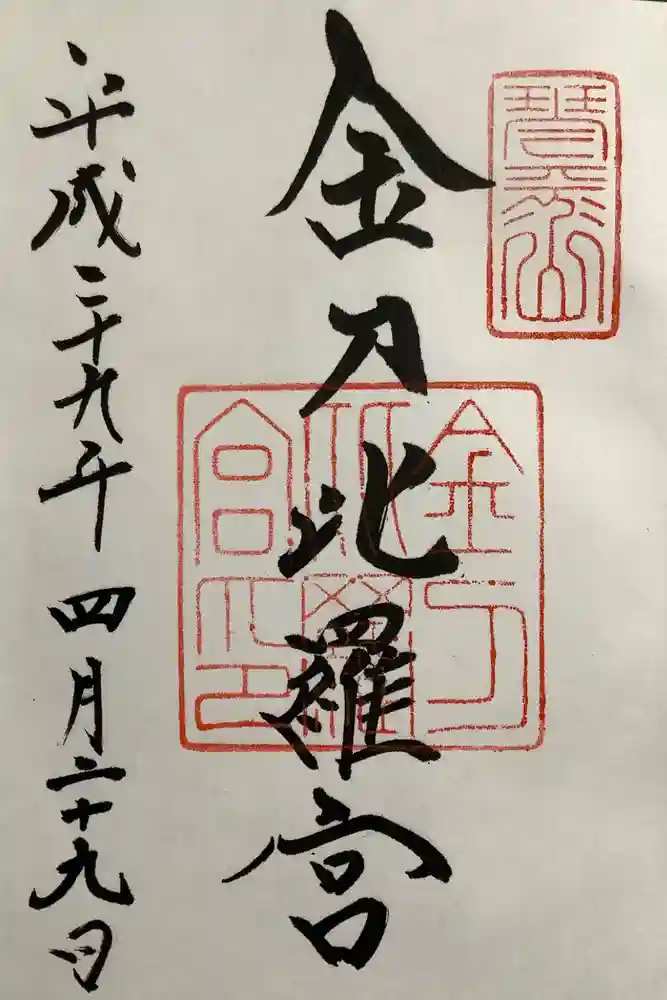 琴平山
金刀比羅宮
金刀
比羅
宮之印
平成二十九年四月二十九日